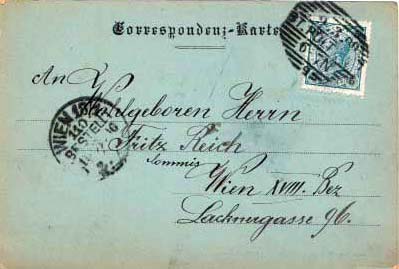 Correspondenz-Karte
An
Wohlgeboren Herrn
Fritz Reich
Commis
Wien XVIII. Bez
Lacknergasse 96.
WIEN 18/1
BESTELLT